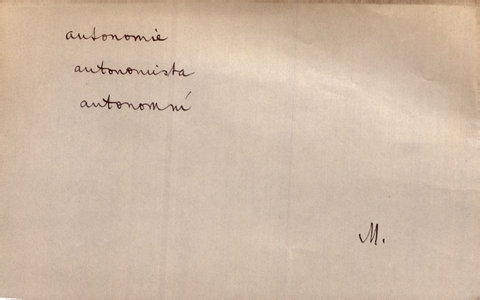 autonomie
autonomista
autonomní
M.